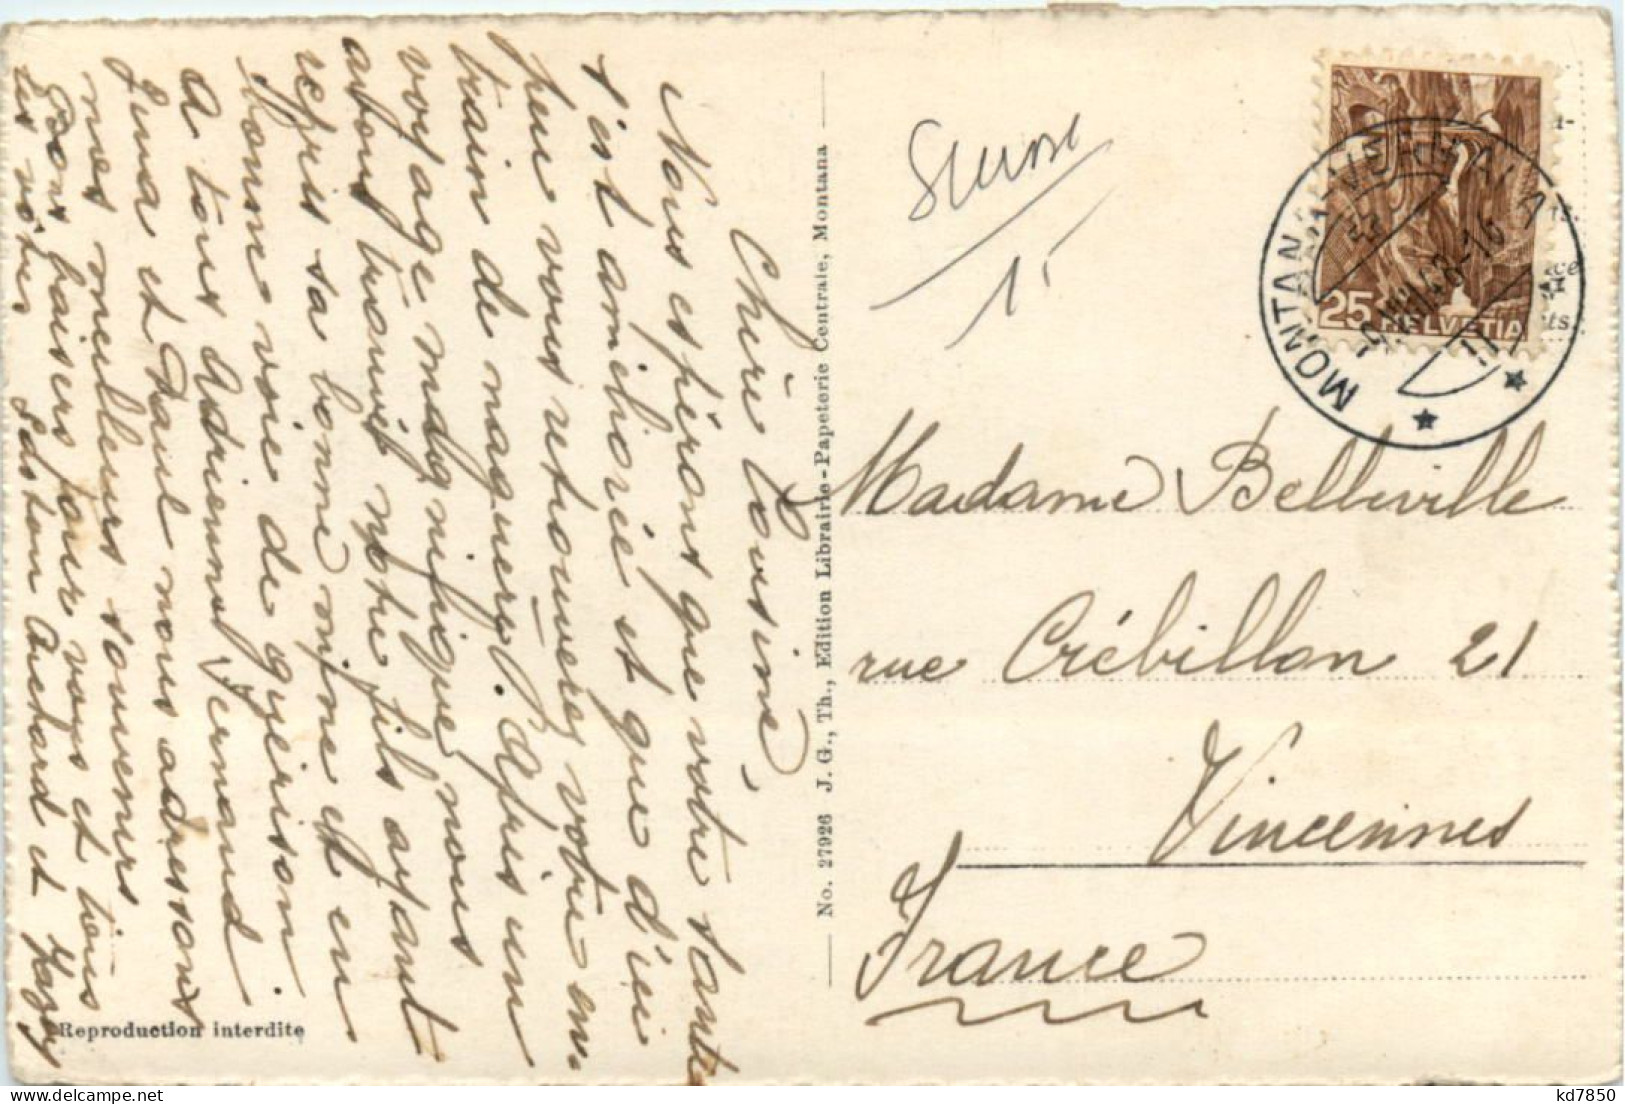 Chère Cousine,
Nous espérons que votre santé
s'est améliorée et que d'ici
peu vous retrouverez votre en-
train de naguère. Après un
voyage magnifique, nous
avons trouvé notre fils ayant
repris sa bonne mine et en
bonne voie de guérison.
A tous Adrienne, Fernand
Irma et Paul nous adressons
nos meilleurs souvenirs
bons baisers pour vous et tous
les vôtres Gaston
Reproduction interdite
No. 27926 J. G., Th., Edition Librairie-Papeterie Centrale, Montana
Suisse
15
25 HELVETIA
MONTANA-VERMALA
Madame Belleville
rue Crébillon 21
Vincennes
France
kd7850